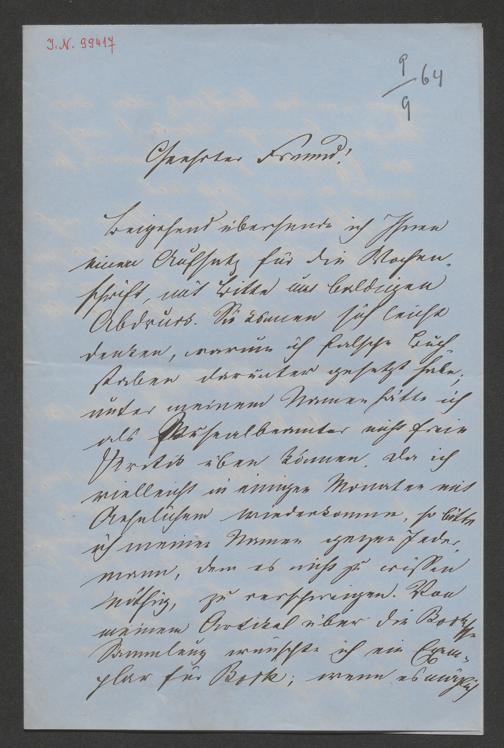 I.N. 99417
9/9 64
Geehrter Freund!
Beigehend übersende ich Ihnen
einen Aufsatz für die Wochen-
schrift, mit Bitte um baldigen
Abdruck. Sie können sich leicht
denken, warum ich falsche Buch
staben darunter gesetzt habe;
unter meinem Namen hätte ich
als Musealbeamter nicht freie
Kritik üben können. Da ich
vielleicht in einigen Monaten mit
Aehnlichem wiederkomme, so bitte
ich meinen Namen gegen Jeder,
mann, dem es nicht zu wissen
nöthig, zu verschweigen. Von
meinem Artikel über die
Sammlung wünschte ich ein Exem-
plar für Bock; wenn es möglich